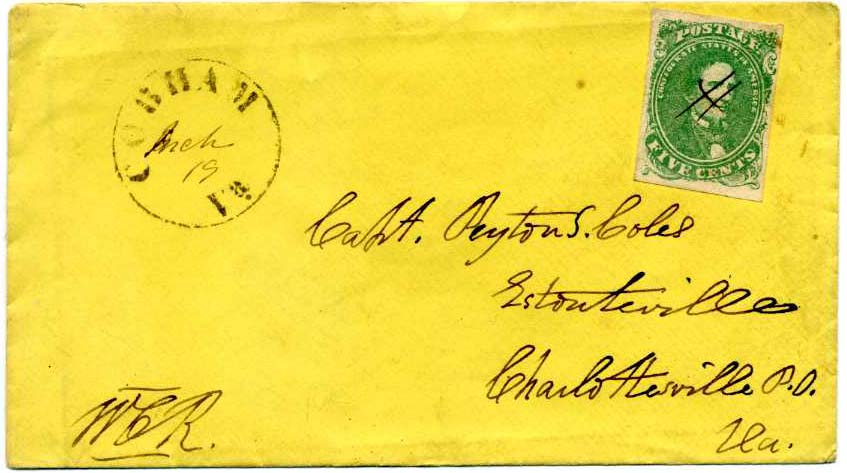 COBHAM
Mch
19
VA
POSTAGE
CONFEDERATE STATES OF AMERICA
FIVE CENTS
Capt. Peyton S. Coles
Estouteville
Charlottesville P.O.
Va.
WCR.